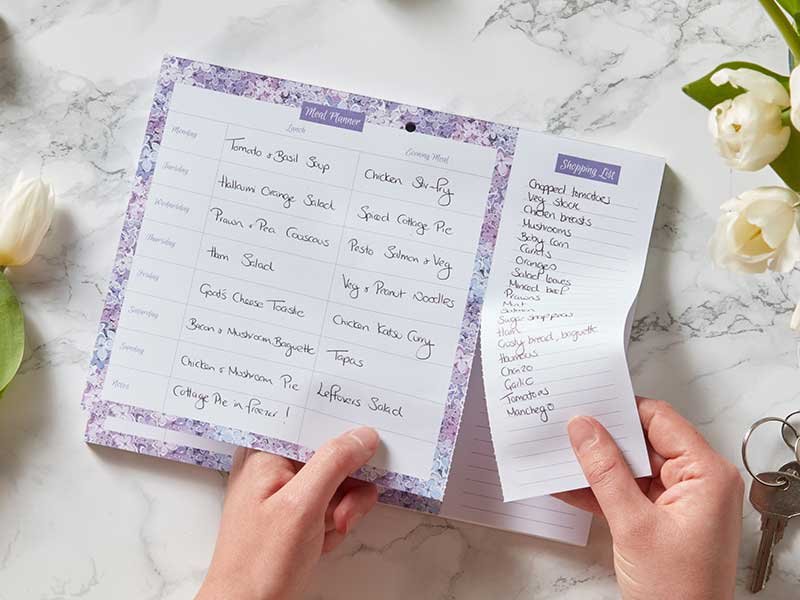 Meal Planner
Lunch Evening Meal
Monday Tomato & Basil Soup Chicken Stir-fry
Tuesday Halloumi Orange Salad Spiced Cottage Pie
Wednesday Prawn & Pea Couscous Pesto Salmon & Veg
Thursday Ham Salad Veg & Peanut Noodles
Friday Goat's Cheese Toastie Chicken Katsu Curry
Saturday Bacon & Mushroom Baguette Tapas
Sunday Chicken & Mushroom Pie Leftovers Salad
Notes Cottage Pie in freezer!
Shopping List
Chopped tomatoes
Veg stock
Chicken breasts
Mushrooms
Baby corn
Carrots
Oranges
Salad leaves
Minced beef
Prawns
Mint
Salmon
Sugar snap peas
Ham
Crusty bread, baguette
Houmous
Chorizo
Garlic
Tomatoes
Manchego